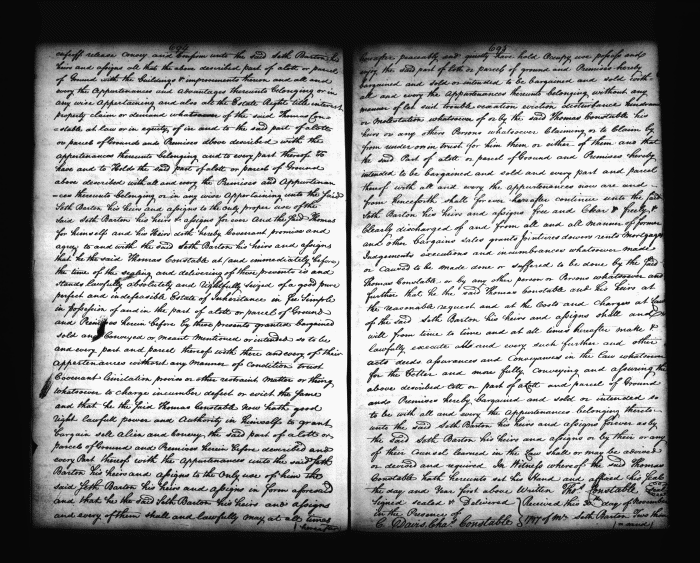 692
enfeoff release convey and confirm unto the said Seth Barton, his
heirs and assigns all that the above described part of a lott or parcel
of Ground with the buildings & improvements thereon and all and
every the Appurtenances and advantages thereunto belonging or in
any wise Appertaining and also all the Estate Right title interest
property claim or demand whatsoever of the said Thomas Con=
=stable at law or in equity, of in and to the said part of a lott
or parcel of Ground and Premises above described with the
appurtenances thereunto belonging and to every part thereof to
have and to Hold the said part of a lott or parcels of Ground
above described with all and every the Premises and Appurtenan=
=ces thereunto belonging or in any wise Appertaining unto the said
Seth Barton his Heirs and assigns to the only proper use of the
said Seth Barton his Heirs & assigns for ever And the said Thomas
for himself and his Heirs doth hereby Covenant promise and
agree to and with the said Seth Barton his heirs and assigns
that he the said Thomas Constable at (and immediately before)
the time of the sealing and delivering of these presents is and
stands lawfully absolutely and Rightfully Seized of a good pure
perfect and indefeasible Estate of Inheritance in Fee Simple
in Possession of and in the part of a lott or parcel of Ground
and Premises herein before by these presents granted bargained
sold and Conveyed or meant mentioned or intended so to be
and every part and parcel thereof with there and every of their
appurtenances without any Manner of Condition trust
Covenant limitation proviso or other restraint Matter or thing
whatsoever to charge incumber defect or evict the same
and that he the said Thomas Constable now hath good
right lawfull power and Authority in himself to grant
bargain sell Alien and convey the said part of a lott or
parcels of Ground and Premises herein before described and
every Part thereof with the Appurtenances unto the said Seth
Barton his Heirs and assigns to the Only use of him the
said Seth Barton his Heirs and assigns in form aforesaid
and that he the said Seth Barton his Heirs and assigns
and every of them shall and lawfully may at all times
hereafter
693
hereafter peaceably and quietly have hold Occupy use possess and
enjoy the said part of lott or parcels of ground and Premises hereby
bargained and sold or intended to be bargained and sold with
all and every the appurtenances thereunto belonging without any
manner of let suit trouble vexation eviction disturbance hindrance
or Molestation whatsoever of or by the said Thomas Constable his
heirs or any others Persons whatsoever Claiming or to Claim by
from under or in trust for him them or either of them and that
the said Part of a lott or parcel of Ground and Premises hereby
intended to be bargained and sold and every part and parcel
thereof with all and every the appurtenances now are and
from henceforth shall for ever hereafter continue unto the said
Seth Barton his Heirs and assigns free and Clear & freely &
Clearly discharged of and from all and all manner of former
and other bargains sales grants jointures dowers rents Mortgages
Judgements executions and incumbrances whatsoever made
or caused to be made done or suffered to be done by the said
Thomas Constable or by any other person or Persons whatsoever and
further that he the said Thomas Constable and his Heirs at
the reasonable request and at the Costs and charges at Law
of the said Seth Barton his Heirs and assigns shall and
will from time to time and at all times hereafter make &
lawfully execute All and every such further and other
acts deeds assurances and Conveyances in the Law whatsoever
for the better and more fully conveying and assuring the
above described lott or part of a lott and parcel of Ground
and Premises hereby bargained and sold or intended so
to be with all and every the Appurtenances belonging thereto
unto the said Seth Barton his heirs and assigns forever as by
the said Seth Barton his heirs and assigns or by their or any
of their Counsel learned in the Law shall or may be advised
or devised and required In Witness whereof the said Thomas
Constable hath hereunto set his Hand and affixed his Seal
the day and Year first above Written Thos Constable Seal
Signed sealed & Delivered } Received this day of
in the Presence of
C. Davis, Chas Constable } 1797 of Mr Seth Barton Two thou